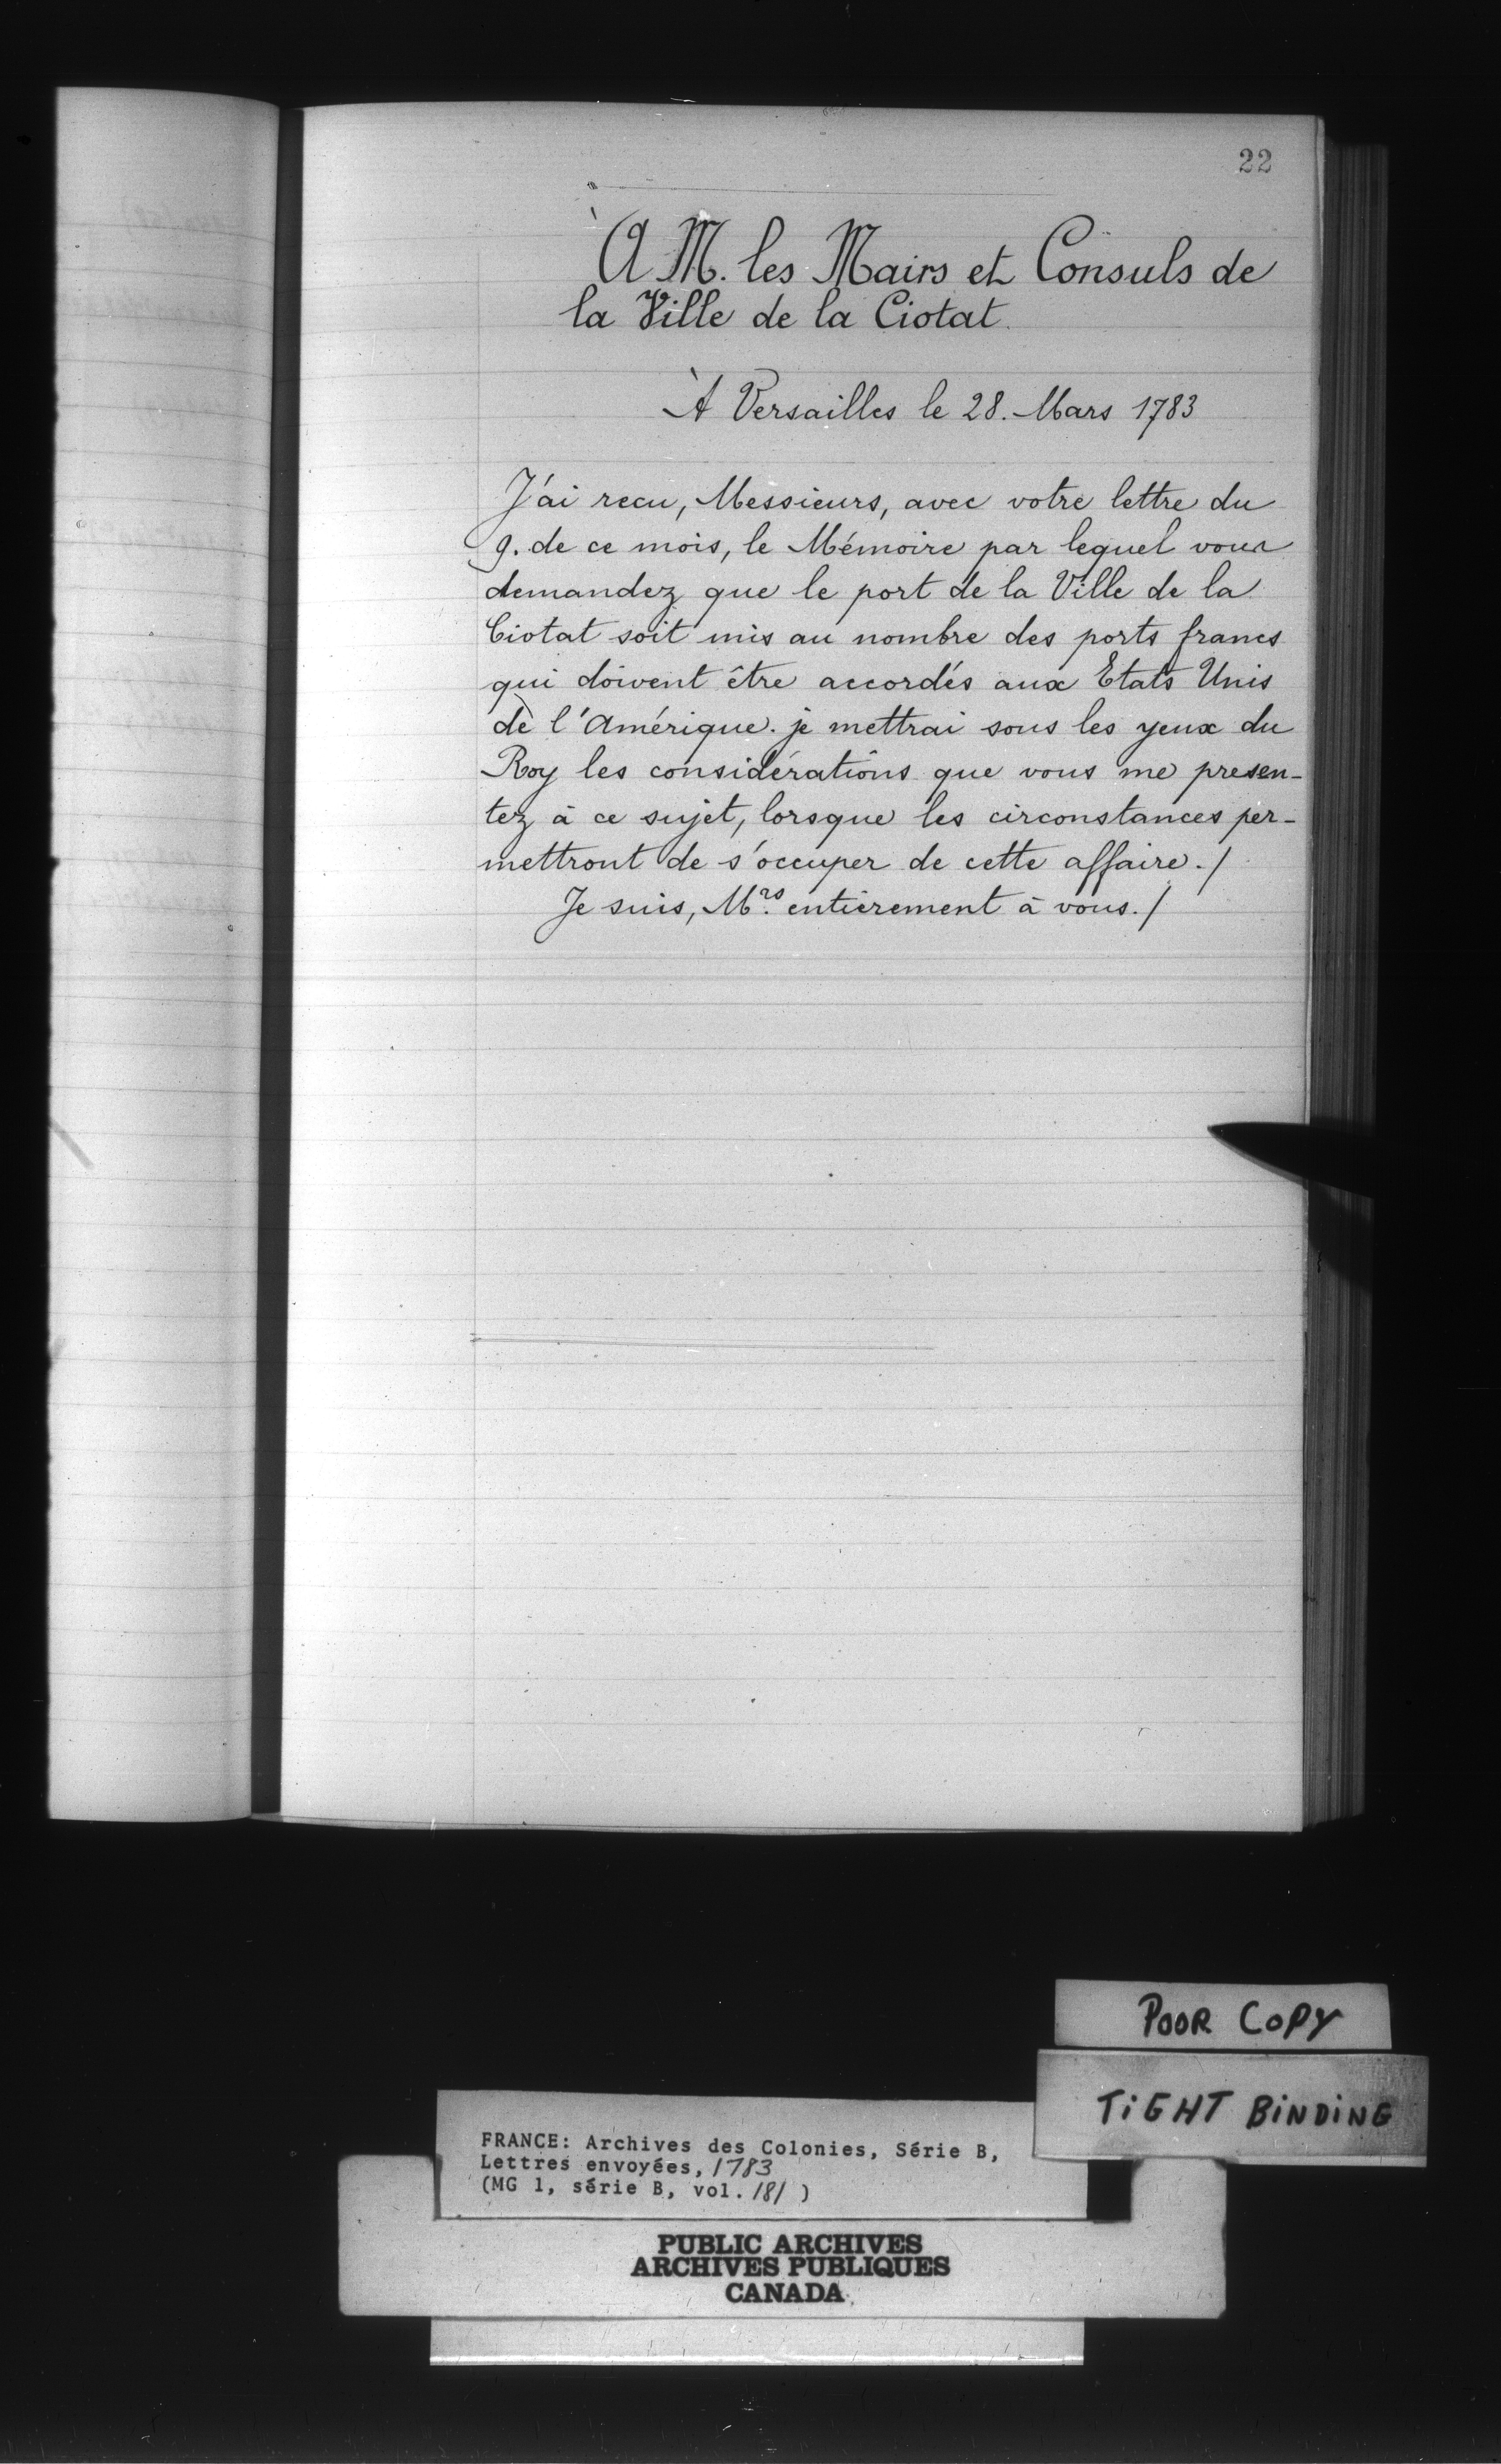 22
À M. les Mairs et Consuls de
la Ville de la Ciotat.
À Versailles le 28. Mars 1783
J'ai recu, Messieurs, avec votre lettre du
9. de ce mois, le Mémoire par lequel vous
demandez que le port de la Ville de la
Ciotat soit mis au nombre des ports francs
qui doivent être accordés aux Etats Unis
de l'Amérique. je mettrai sous les yeux du
Roy les considérations que vous me presen-
tez à ce sujet, lorsque les circonstances per-
mettront de s'occuper de cette affaire./
Je suis, Mrs. entièrement à vous./
POOR COPY
TiGHT BiNDiNG
FRANCE: Archives des Colonies, Série B,
Lettres envoyées, 1783
(MG 1, série B, vol. 181)
PUBLIC ARCHIVES
ARCHIVES PUBLIQUES
CANADA